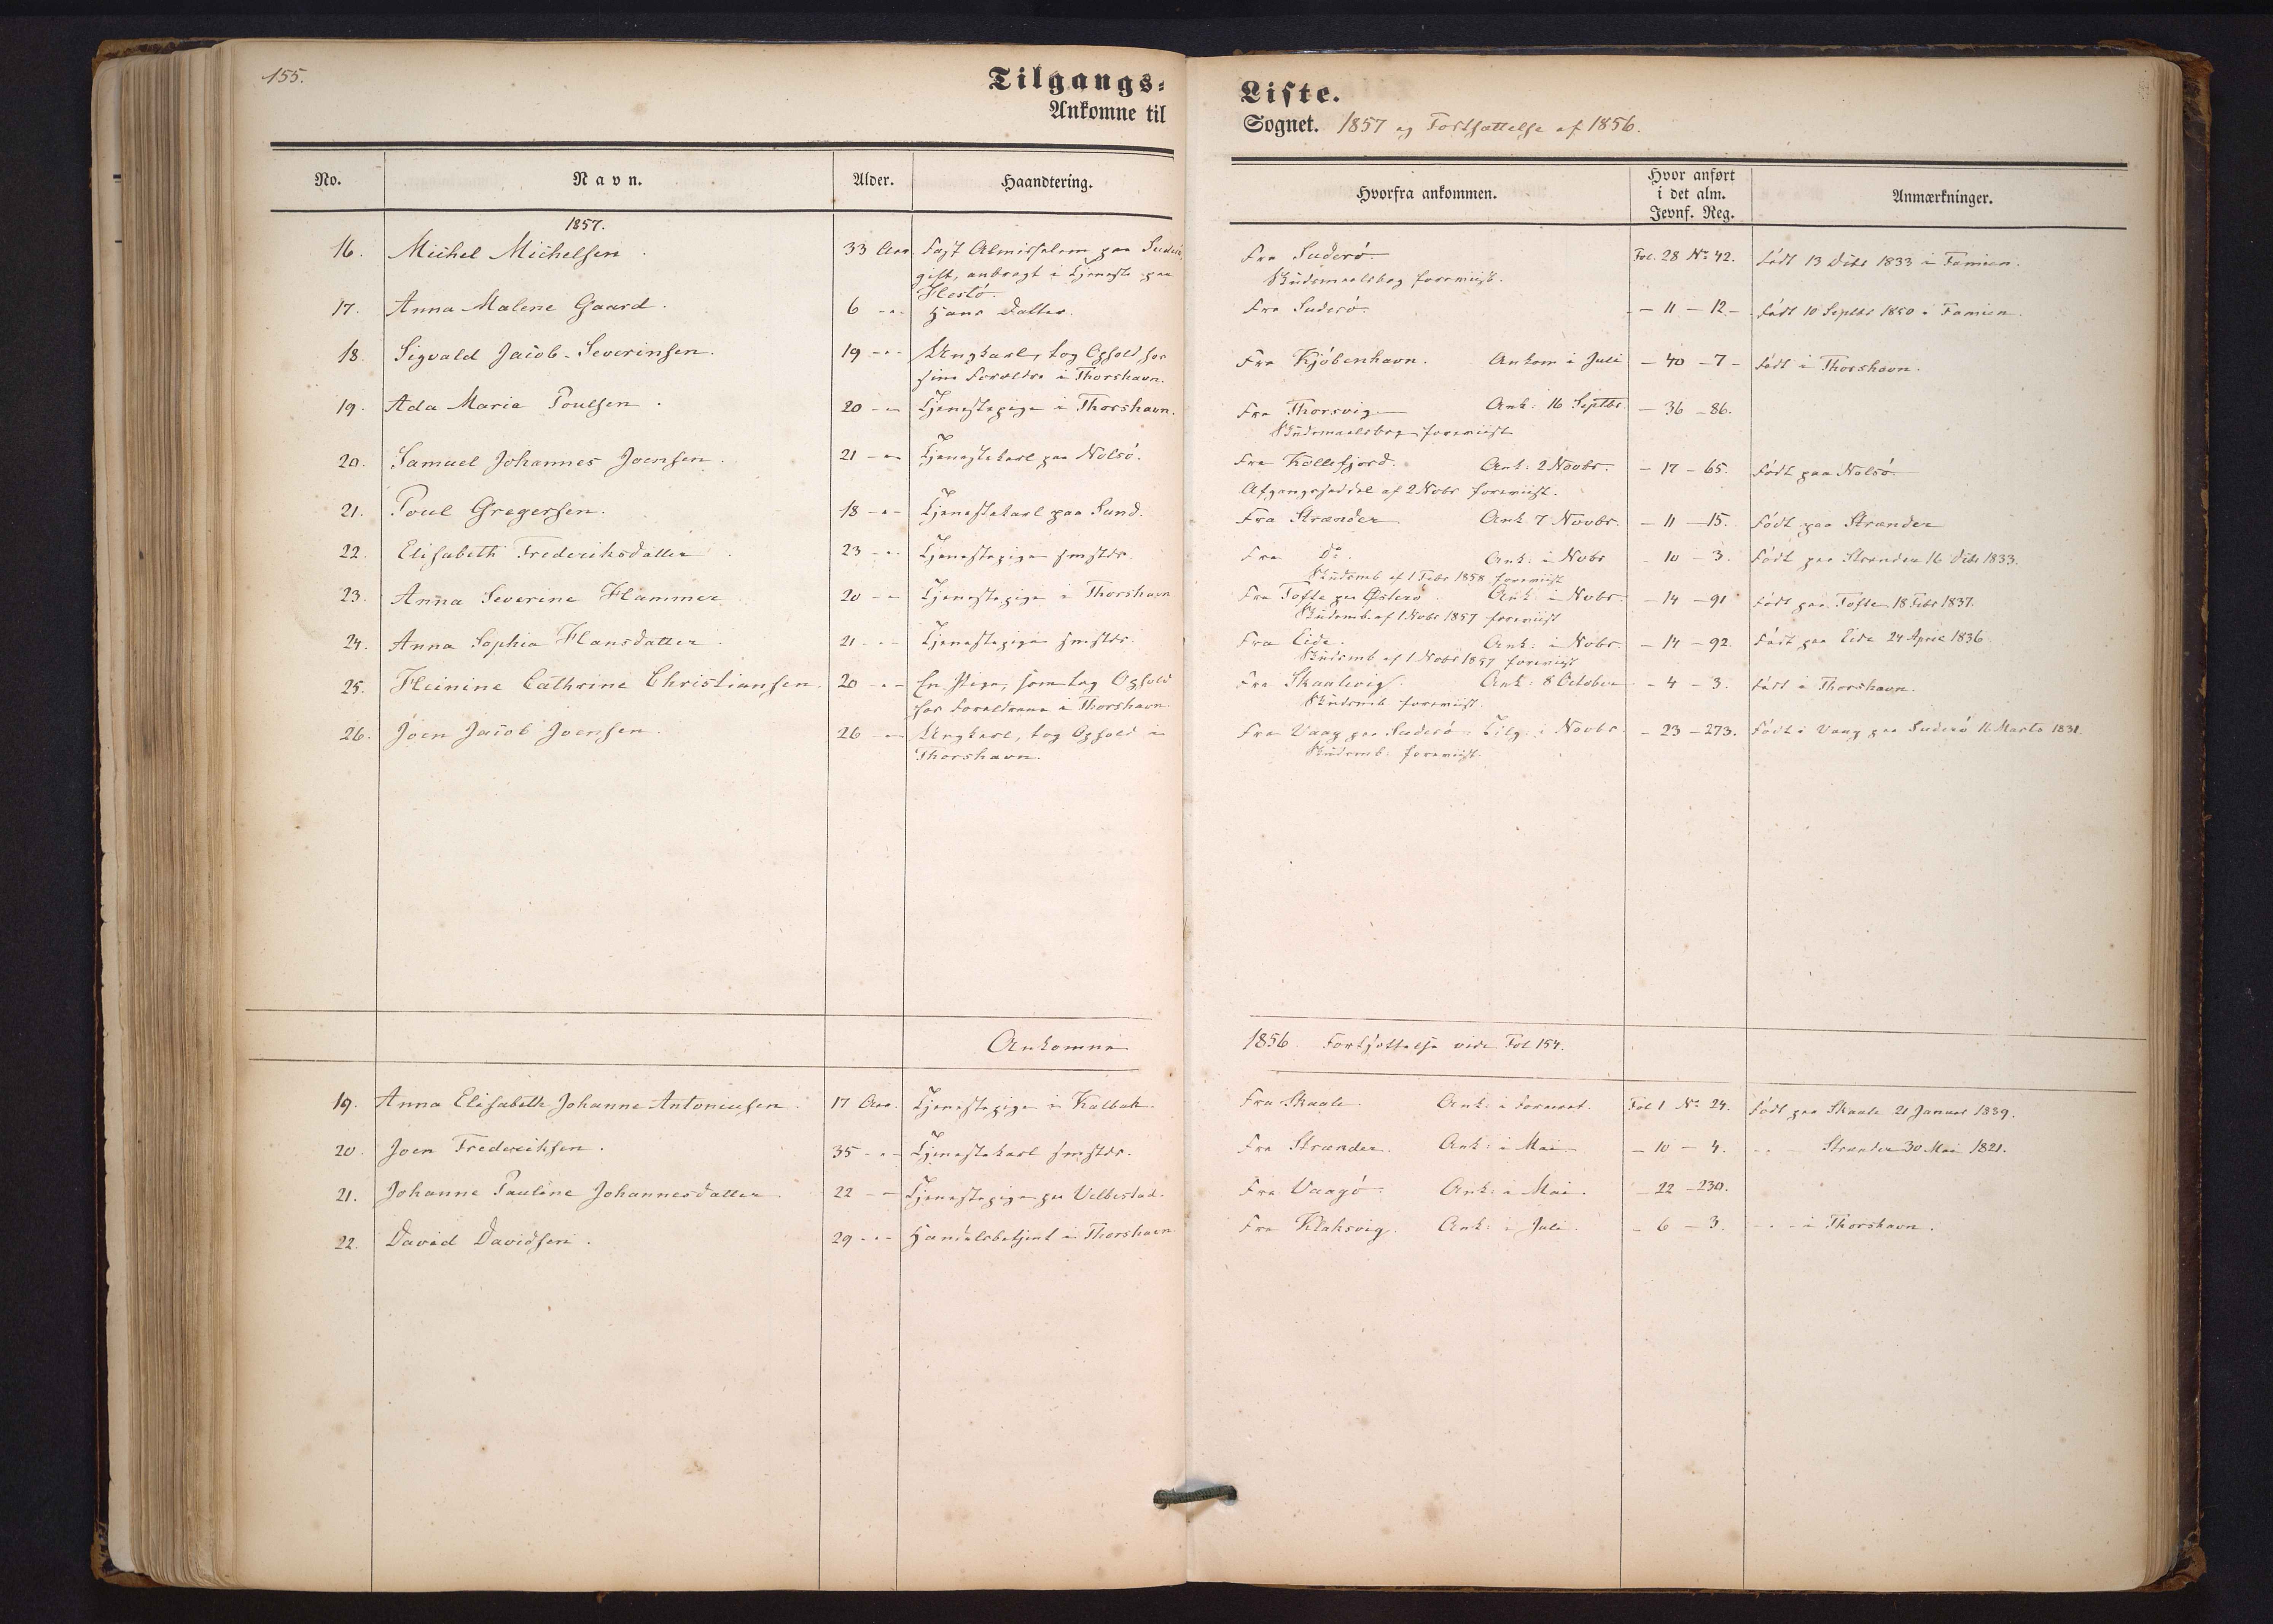 155.
Tilgangs-
Liste.
Ankomne til
Sognet. 1857 og Fortsættelse af 1856.
No. Navn. Alder. Haandtering. Hvorfra ankommen. Hvor anført i det alm. Jevnf. Reg. Anmærkninger.
1857.
16. Michel Michelsen. 33 Aar paa Fra Suderö. Fol. 28 No 42. Født 13 Decbr 1833 i Famien.
gift, anbragt i Tjeneste paa Skudsmaalsbog foreviist.
Hestö.
17. Anna Malene Gaard. 6 -"- Hans Datter. Fra Suderö. - 11 - 12 - Født 10 Septbr 1850 i Famien.
18. Sigvald Jacob Severinsen. 19 -"- Ungkarl, tog Ophold hos Fra Kjöbenhavn. Ankom i Juli - 40 - 7 - Født i Thorshavn.
sine Forældre i Thorshavn.
19. Ada Maria Poulsen. 20 -"- Tjenestepige i Thorshavn. Fra Thorsvig Ank: 16 Septbr. - 36 - 86.
Skudsmaalsbog foreviist
20. Samuel Johannes Joensen. 21 -"- Tjenestekarl paa Nolsö. Fra Kollefjord. Ank: 2 Novbr. - 17 - 65. Født paa Nolsö
Afgangsseddel af 2 Nobr foreviist.
21. Poul Gregersen. 18 -"- Tjenestekarl paa Sund. Fra Strænder Ank 7 Novbr. - 11 - 15. Født paa Strænder
22. Elisabeth Frederiksdatter 23 -"- Tjenestepige smstds. Fra Do. Ank: i Nobr - 10 - 3. Født paa Strænder 16 Decbr 1833.
Skudsmb af 1 Febr 1858 foreviist
23. Anna Severine Hammer 20 -"- Tjenestepige i Thorshavn Fra Tofte paa Østerö Ank: i Nobr. - 14 - 91 Født paa Tofte 18 Febr 1837.
Skudsmb. af 1 Nobr 1857 foreviist
24. Anna Sophia Hansdatter 21 -"- Tjenestepige smstds. Fra Eide. Ank: i Nobr. - 14 - 92. Født paa Eide 24 April 1836
Skudsmb af 1 Nobr 1857 foreviist
25. Heinine Cathrine Christiansen. 20 -"- En Pige, som tog Ophold Fra Skaalevig. Ank: 8 October - 4 - 3. Født i Thorshavn.
hos Forældrene i Thorshavn. Skudsmb foreviist.
26. Joen Jacob Joensen. 26 -"- Ungkarl, tog Ophold i Fra Vaag paa Suderö Tilg. i Novbr. - 23 - 273. Født i Vaag paa Suderö 16 Marts 1831.
Thorshavn. Skudsmb: foreviist.
Ankomne 1856. Fortsættelse vide Fol 154.
19. Anna Elisabeth Johanne Antoniusen. 17 Aar. Tjenestepige i Kalbak. Fra Skaale. Ank: i Foraaret. Fol 1 No 24. Født paa Skaale 21 Januar 1839.
20. Joen Frederiksen. 35 -"- Tjenestekarl smstds. Fra Strænder. Ank: i Mai - 10 - 4. -"- Strænder 30 Mai 1821.
21. Johanne Pauline Johannesdatter 22 -"- Tjenestepige paa Velbestad. Fra Vaagö. Ank: i Mai. - 22 - 230.
22. David Davidsen. 29 -"- Handelsbetjent i Thorshavn Fra Klaksvig. Ank: i Juli. - 6 - 3. -"- i Thorshavn.